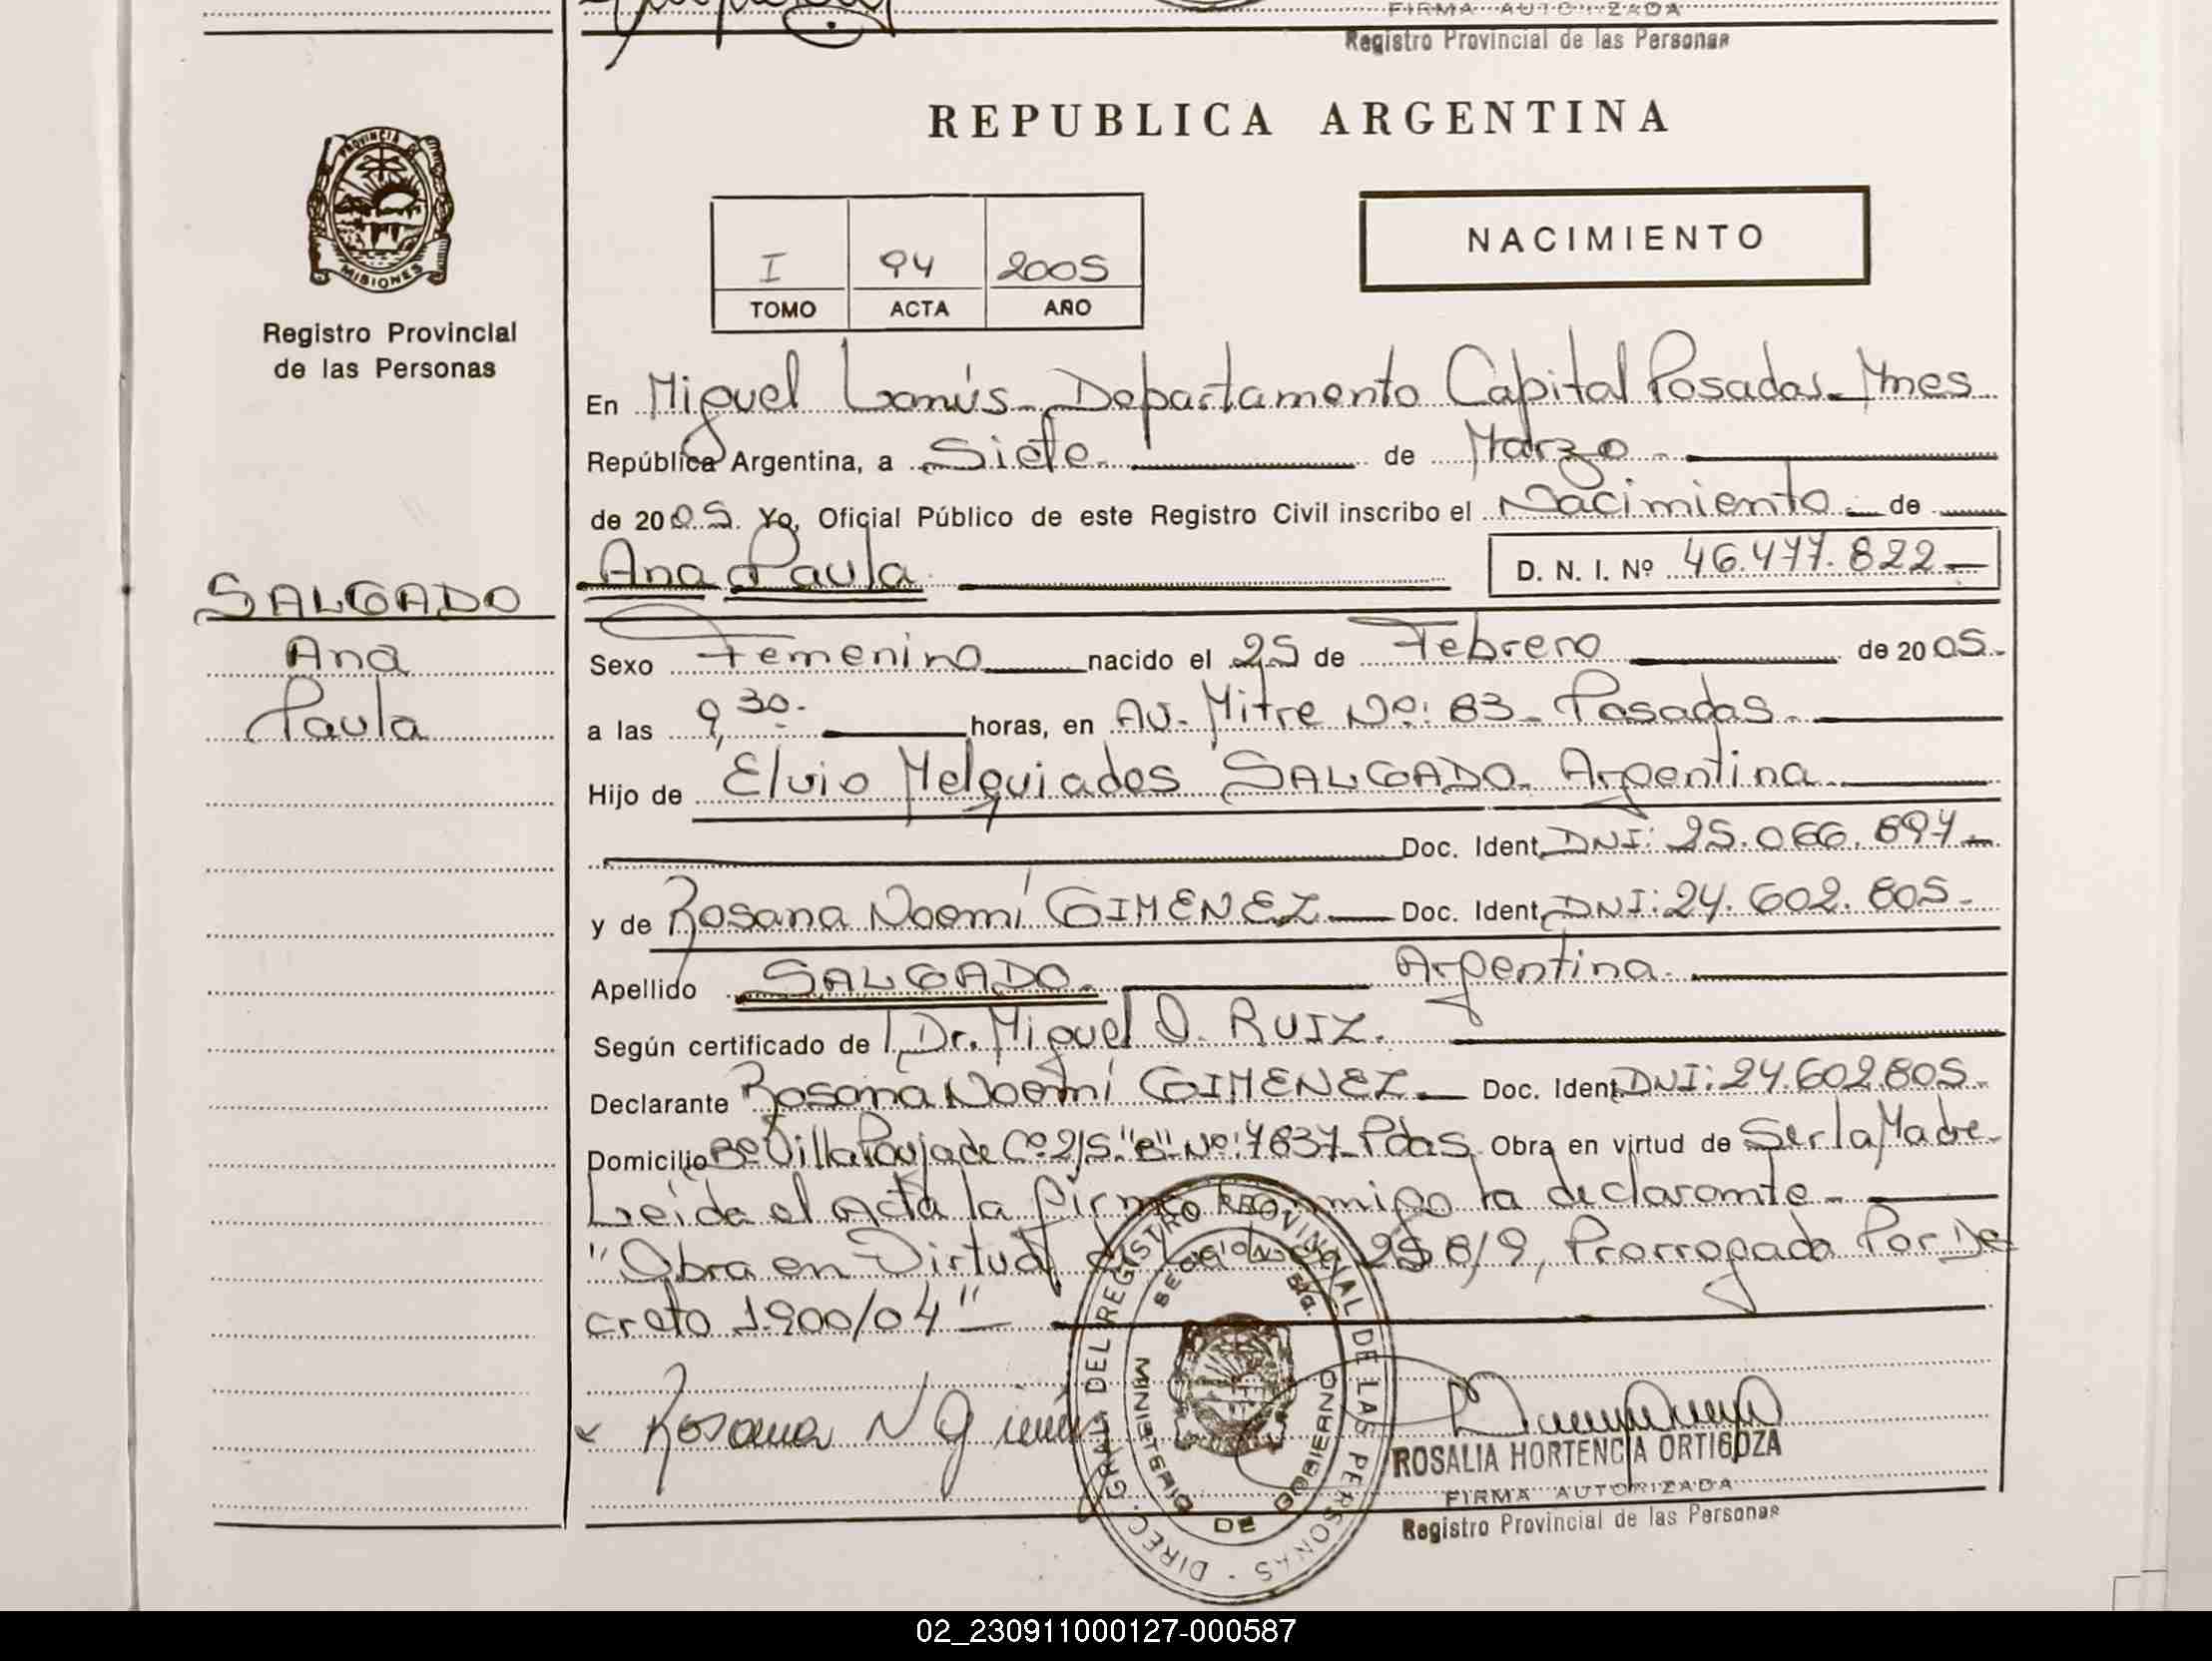 FIRMA AUTORIZADA
Registro Provincial de las Personas
PROVINCIA DE MISIONES
Registro Provincial
de las Personas
REPUBLICA ARGENTINA
I 94 2005
TOMO ACTA AÑO
NACIMIENTO
En Miguel Lanús - Departamento Capital Posadas - Mnes
República Argentina, a Siete de Marzo
de 2005. Yo, Oficial Público de este Registro Civil inscribo el Nacimiento de
Ana Paula D. N. I. Nº 46.477.822
SALGADO
Ana
Paula
Sexo Femenino nacido el 25 de Febrero de 2005.
a las 9,30 horas, en Av. Mitre Nº: 83 - Posadas.
Hijo de Elvio Melquiades SALGADO. Argentina
Doc. Ident. DNI: 25.066.897
y de Rosana Noemí GIMENEZ Doc. Ident. DNI: 24.602.805
Apellido SALGADO. Argentina
Según certificado de Dr. Miguel O. RUIZ.
Declarante Rosana Noemí GIMENEZ Doc. Ident. DNI: 24.602805
Domicilio Bº Villa Poujade Cº 2/S. "B" Nº: 7837 Pdas Obra en virtud de Ser la Madre
Leída el Acta la firma conmigo la declarante
"Obra en Virtud de 256/9, Prorrogada Por De
creto 1.900/04"
Rosana N Gimenez
DIREC. GRAL. DEL REGISTRO PROVINCIAL DE LAS PERSONAS
MINISTERIO DE GOBIERNO
ROSALIA HORTENCIA ORTIGOZA
FIRMA AUTORIZADA
Registro Provincial de las Personas
02_230911000127-000587